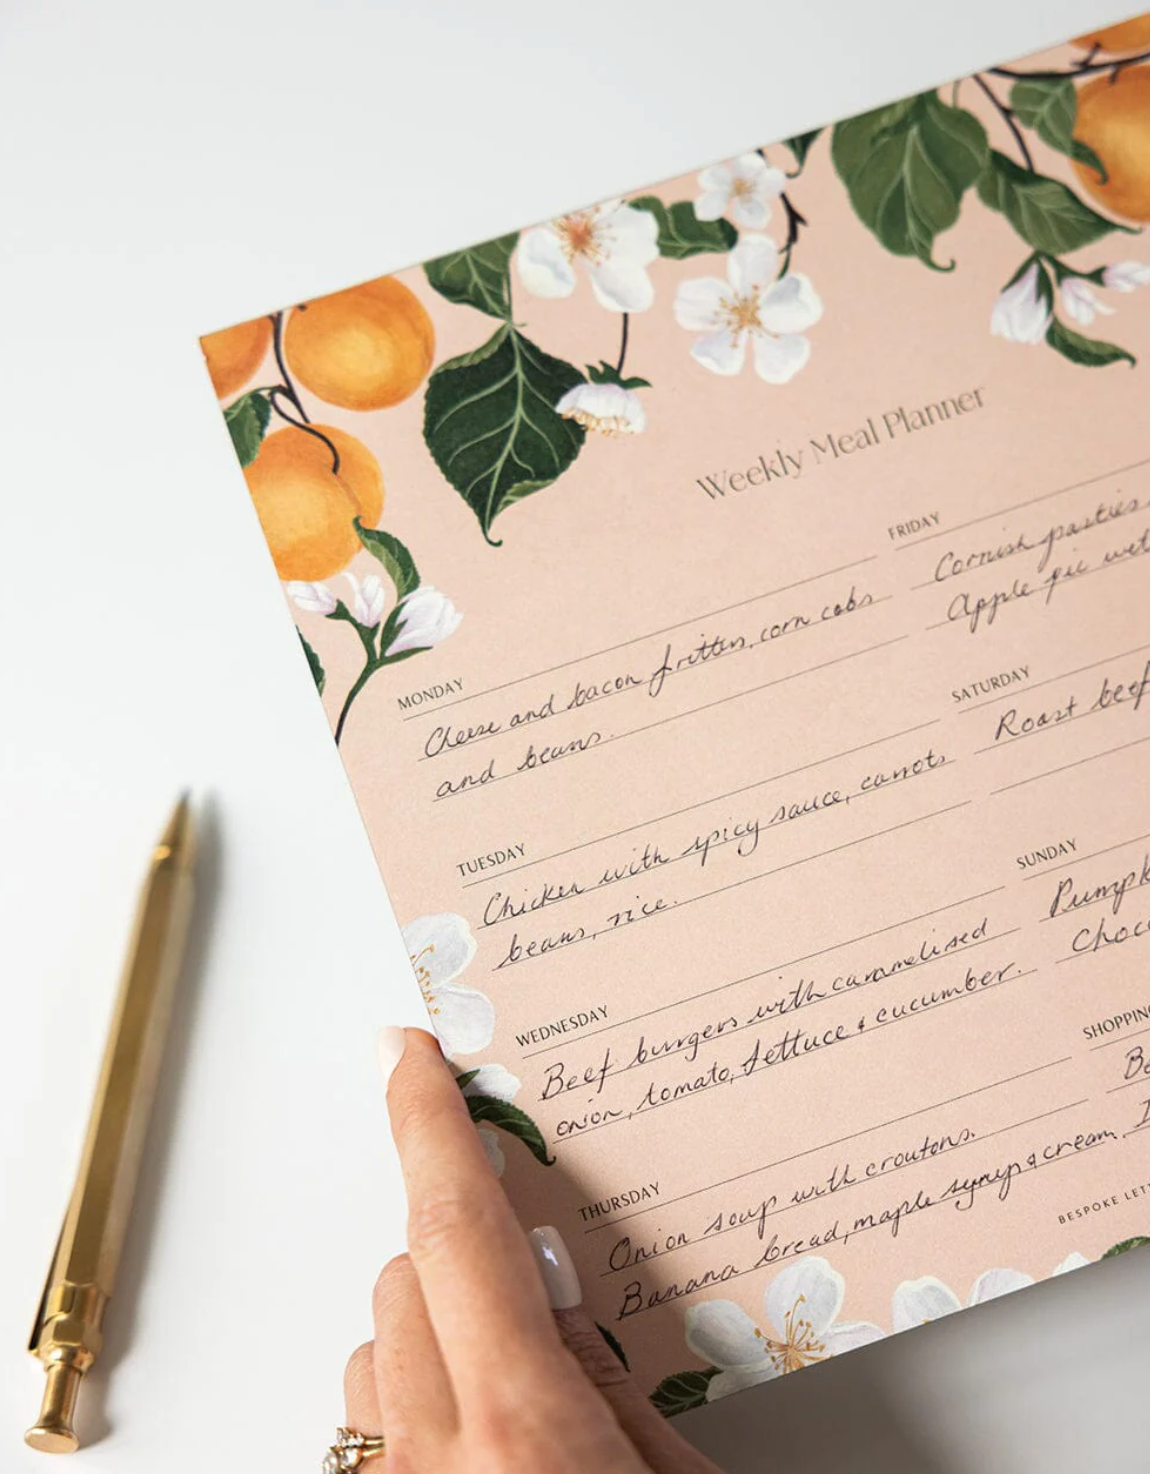 Weekly Meal Planner
MONDAY
Cheese and bacon fritters, corn cobs
and beans.
TUESDAY
Chicken with spicy sauce, carrots
beans, rice.
WEDNESDAY
Beef burgers with caramelised
onion, tomato, lettuce & cucumber.
THURSDAY
Onion soup with croutons.
Banana bread, maple syrup & cream.
FRIDAY
Cornish pasties
Apple pie
SATURDAY
Roast beef
SUNDAY
BESPOKE